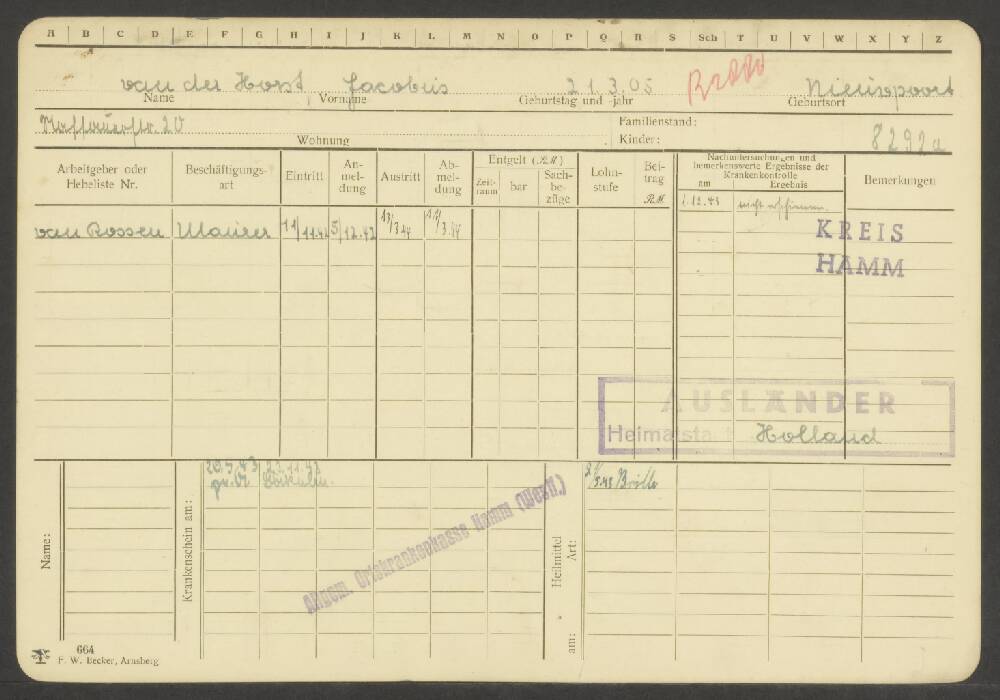 A B C D E F G H I J K L M N O P Q R S Sch T U V W X Y Z
van der Horst Jacobus 21.3.05 Nieuwpoort
Name Vorname Geburtstag und -jahr Geburtsort
Familienstand:
Wohnung Kinder: 8292a
Arbeitgeber oder Hebeliste Nr.
Beschäftigungsart
Eintritt
An-mel-dung
Austritt
Ab-mel-dung
Entgelt (RM)
Zeit-raum
bar
Sach-be-züge
Lohn-stufe
Bei-trag
RM
Nachuntersuchungen und
bemerkenswerte Ergebnisse der
Krankenkontrolle
am Ergebnis
Bemerkungen
1.12.43 nicht erschienen.
van Rossen Maurer 11/11.42 5/12.42 13/3.44 14/3.44
KREIS
HAMM
AUSLÄNDER
Heimatsta Holland
Name:
Krankenschein am:
20.5.43 23.11.43
Heilmittel
Art:
am:
Brille
Allgem. Ortskrankenkasse Hamm (Westf.)
664
F. W. Becker, Arnsberg